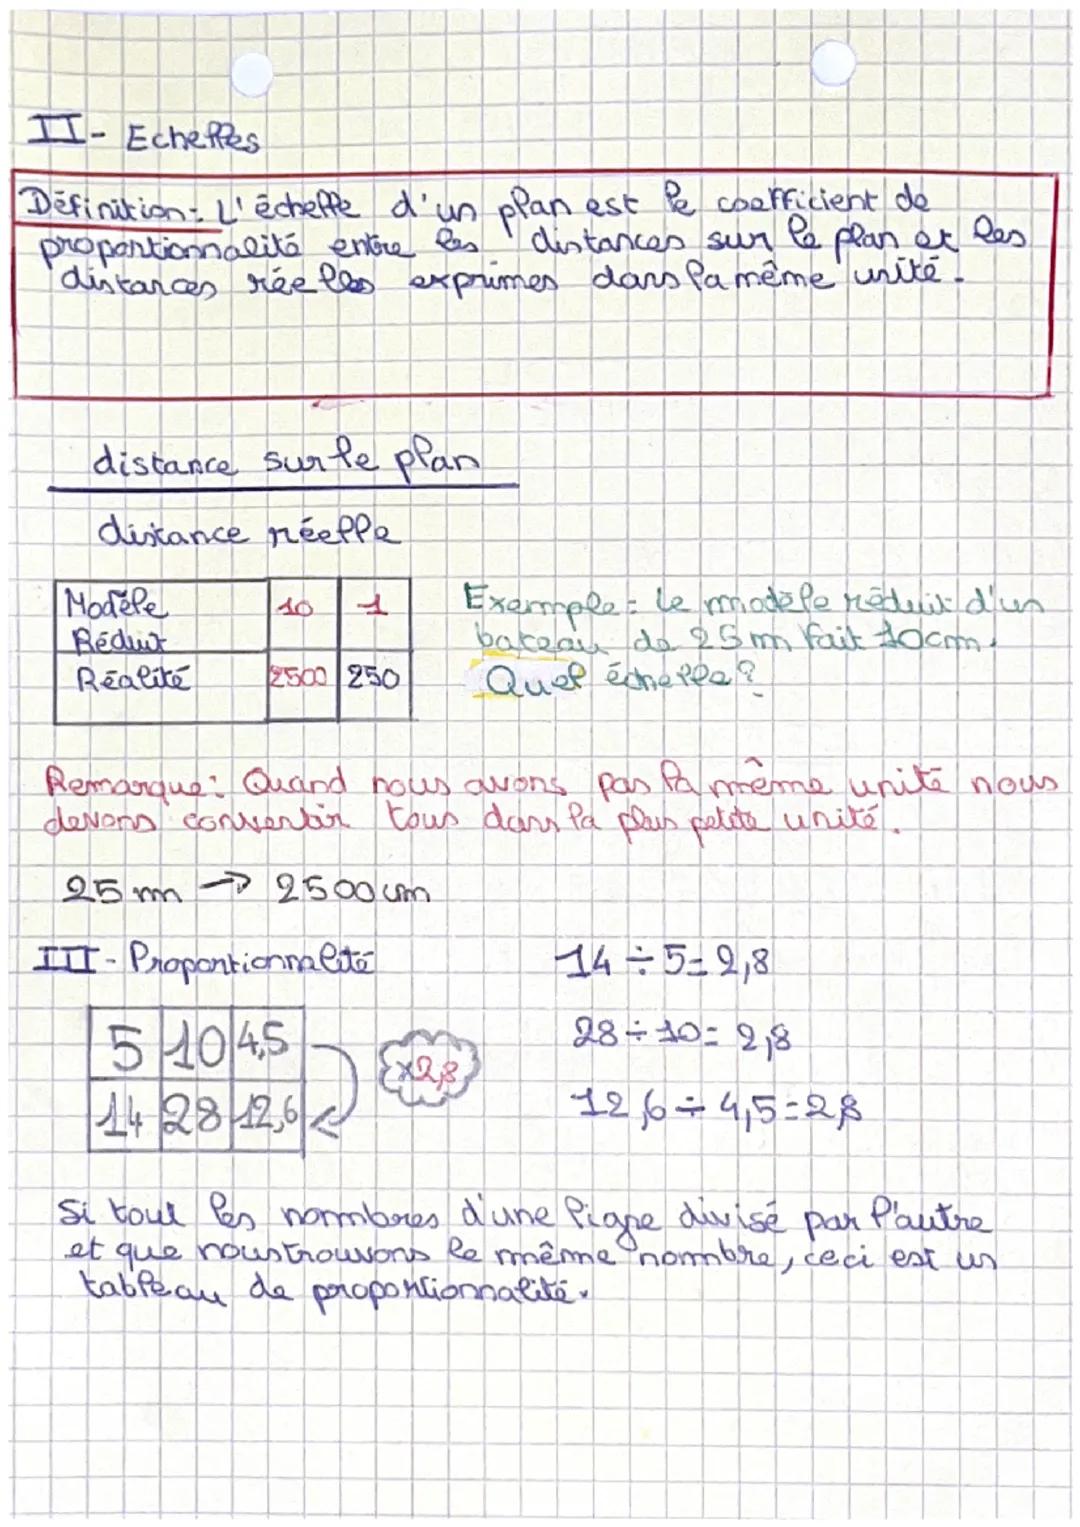 II- Echelles
Définition: L'échelle d'un plan est le coefficient de
proportionnalité entre les distances sur le plan et les
distances réelles exprimes dans la même unité.
distance sur le plan
distance réelle
Modèle Réduit 10 1
Réalité 2500 250
Exemple: le modèle réduit d'un
bateau de 25 m fait 10cm.
Quel échelle?
Remarque: Quand nous avons pas la même unité nous
devons convertir tous dans la plus petite unité.
25 m → 2500 cm
III- Proportionnalité
5 10 4,5
14 28 12,6
×2,8
14 ÷ 5 = 2,8
28 ÷ 10 = 2,8
12,6 ÷ 4,5 = 2,8
Si tout les nombres d'une ligne divisé par l'autre
et que nous trouvons le même nombre, ceci est un
tableau de proportionnalité.